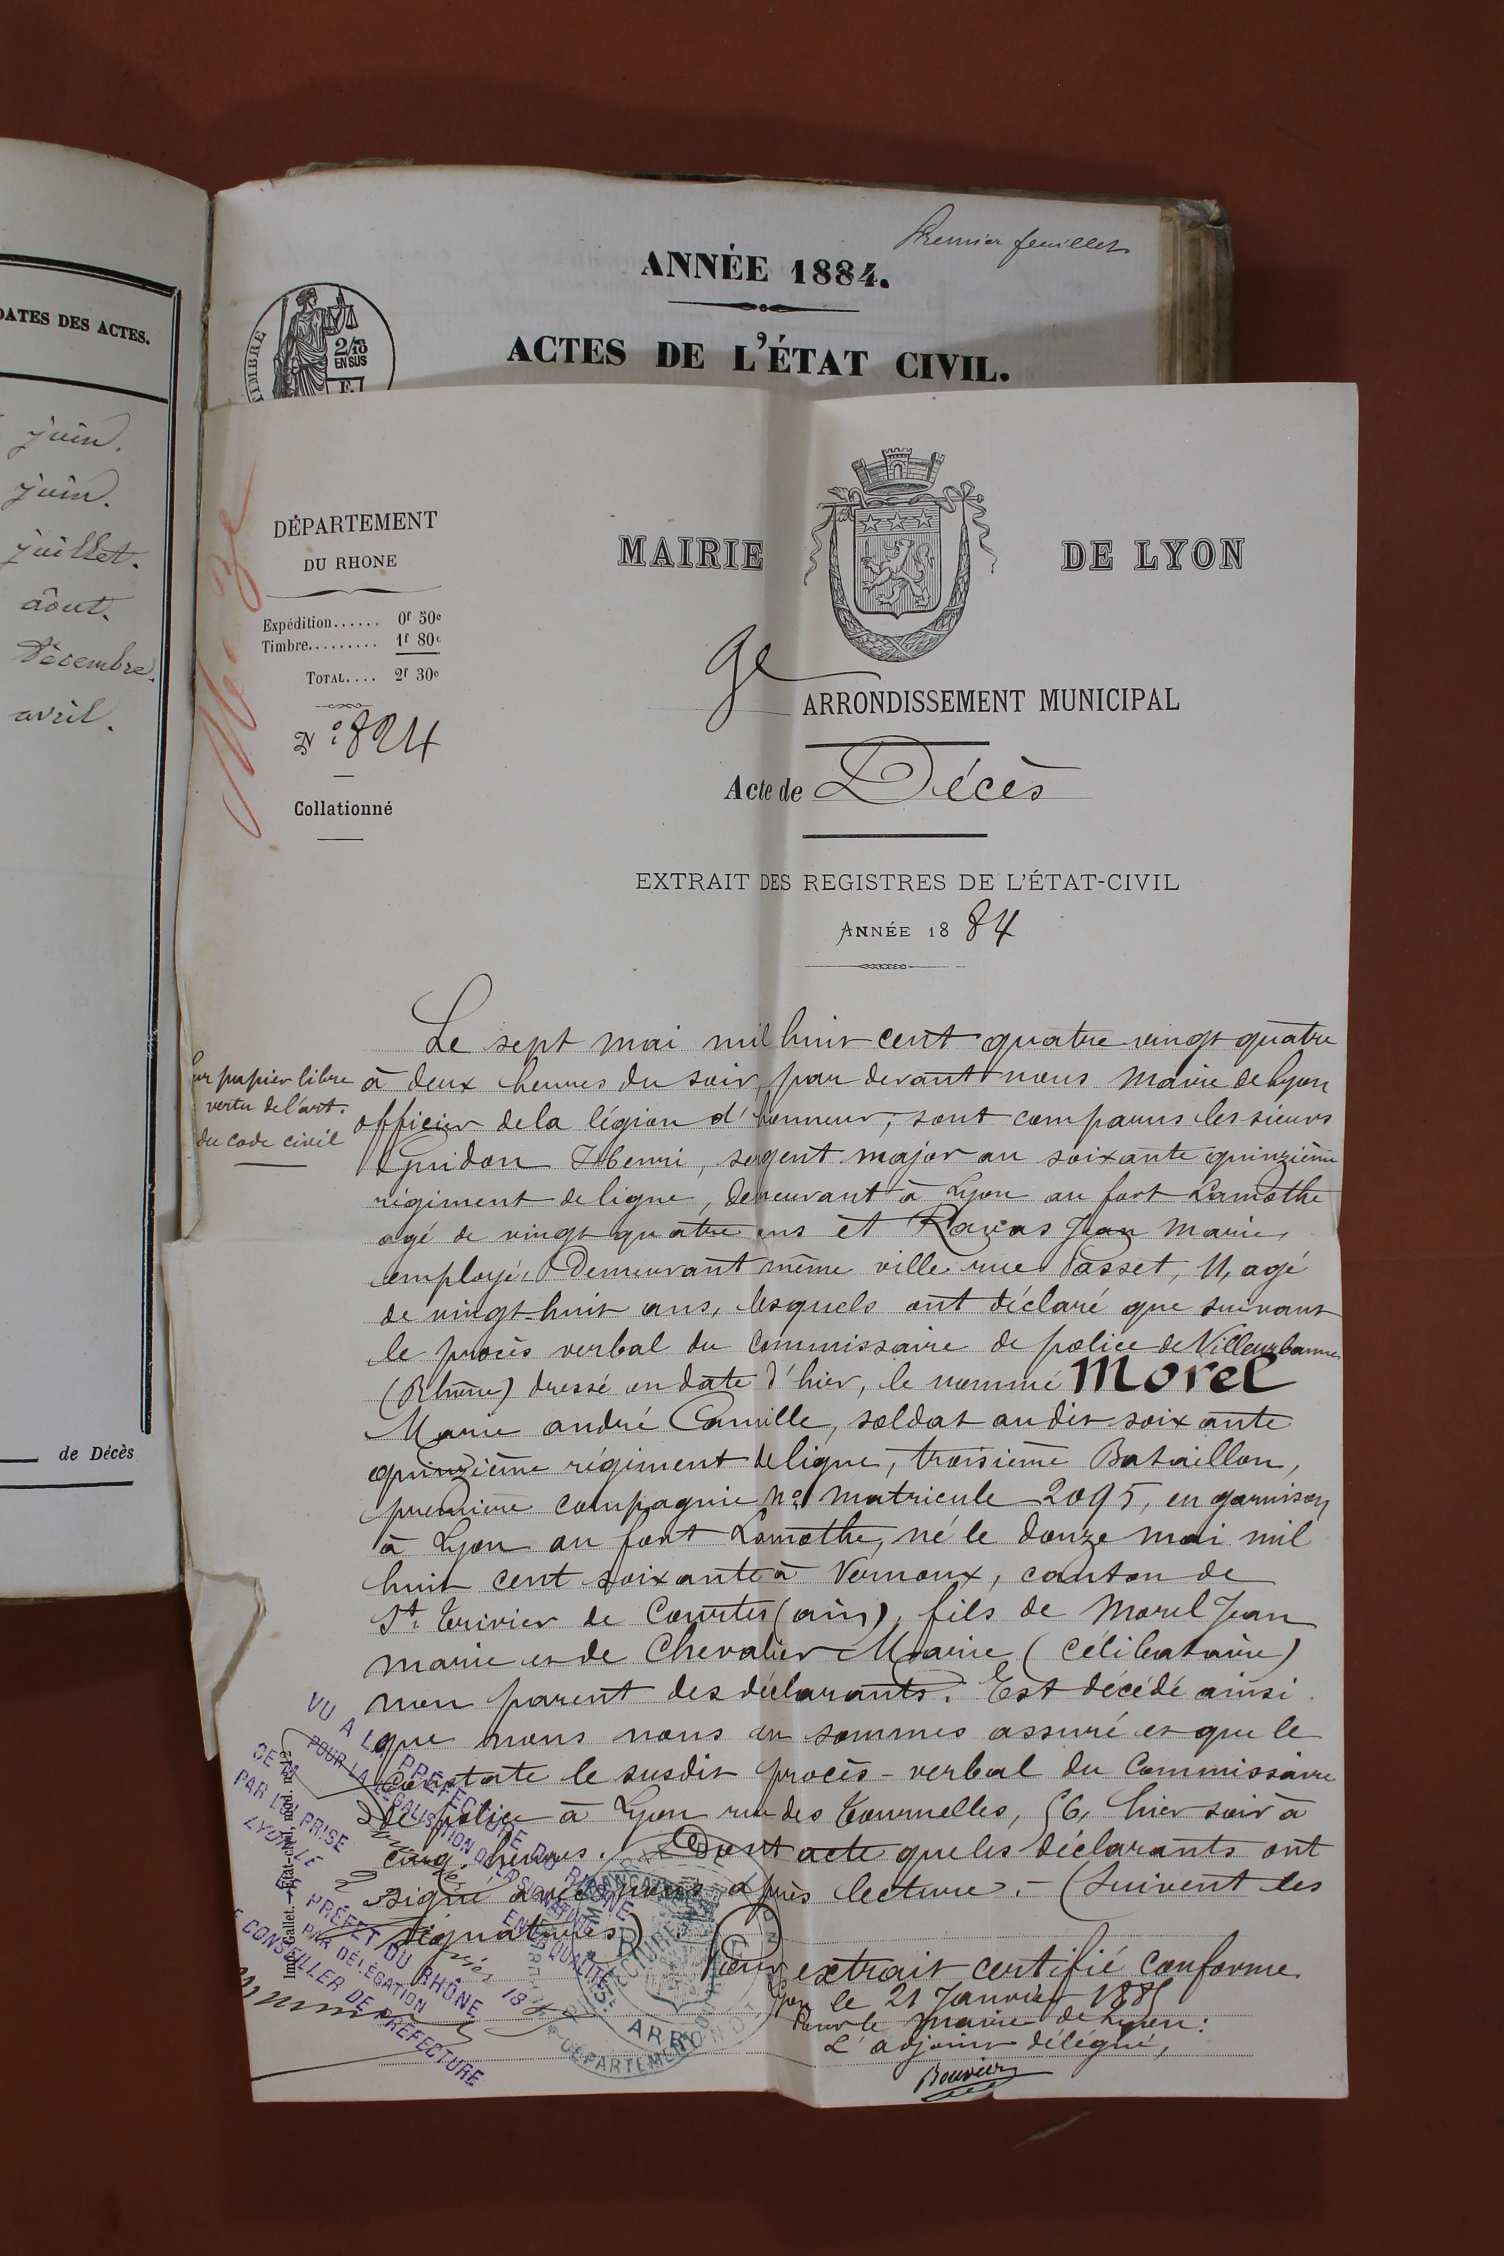 DATES DES ACTES.
juin.
juin.
juillet.
âout.
Décembre.
avril.
de Décès
Premier feuillet
ANNÉE 1884.
ACTES DE L'ÉTAT CIVIL.
TIMBRE
2/10
EN SUS
DÉPARTEMENT
DU RHONE
Expédition...... 0f 50c
Timbre......... 1f 80c
TOTAL.... 2f 30c
No 824
Collationné
MAIRIE DE LYON
3e ARRONDISSEMENT MUNICIPAL
Acte de Décès
EXTRAIT DES REGISTRES DE L'ÉTAT-CIVIL
ANNÉE 1884
papier libre
vertu de l'art.
du code civil
Le sept mai mil huit cent quatre vingt quatre
à deux heures du soir par devant nous Maire de Lyon
officier de la légion d'honneur, sont comparus les sieurs
Guidon Henri, sergent major au soixante quinzième
régiment de ligne, demeurant à Lyon au fort Lamothe
agé de vingt quatre ans et Ravas Jean Marie,
employé, Demeurant même ville rue Passet, 11, agé
de vingt-huit ans, lesquels ont déclaré que suivant
le procès verbal du commissaire de police de Villeurbanne
(Rhône) dressé en date d'hier, le nommé Morel
Marie andré Camille, soldat audit soixante
quinzième régiment de ligne, troisième Bataillon,
première compagnie No matricule 2095, en garnison
à Lyon au fort Lamothe, né le douze mai mil
huit cent soixante à Vernoux, canton de
St. Trivier de Courtes (ain), fils de Morel Jean
marie et de Chevalier Marie (célibataire)
non parent des déclarants. Est décédé ainsi
que nous nous en sommes assuré et que le
constate le susdit procès-verbal du Commissaire
de police à Lyon rue des Tournelles, 56, hier soir à
cinq heures. Dont acte que les déclarants ont
signé avec nous après lecture. - (Suivent les
signatures)
Pour extrait certifié conforme
Lyon le 21 Janvier 1885
Pour le Maire de Lyon:
L'adjoint délégué,
Bouvier
VU A LA PRÉFECTURE DU RHÔNE
POUR LA LÉGALISATION DE LA SIGNATURE
DE M
PAR LUI PRISE EN SA QUALITÉ
LYON LE
LE PRÉFET DU RHÔNE
PAR DÉLÉGATION
CONSEILLER DE PRÉFECTURE